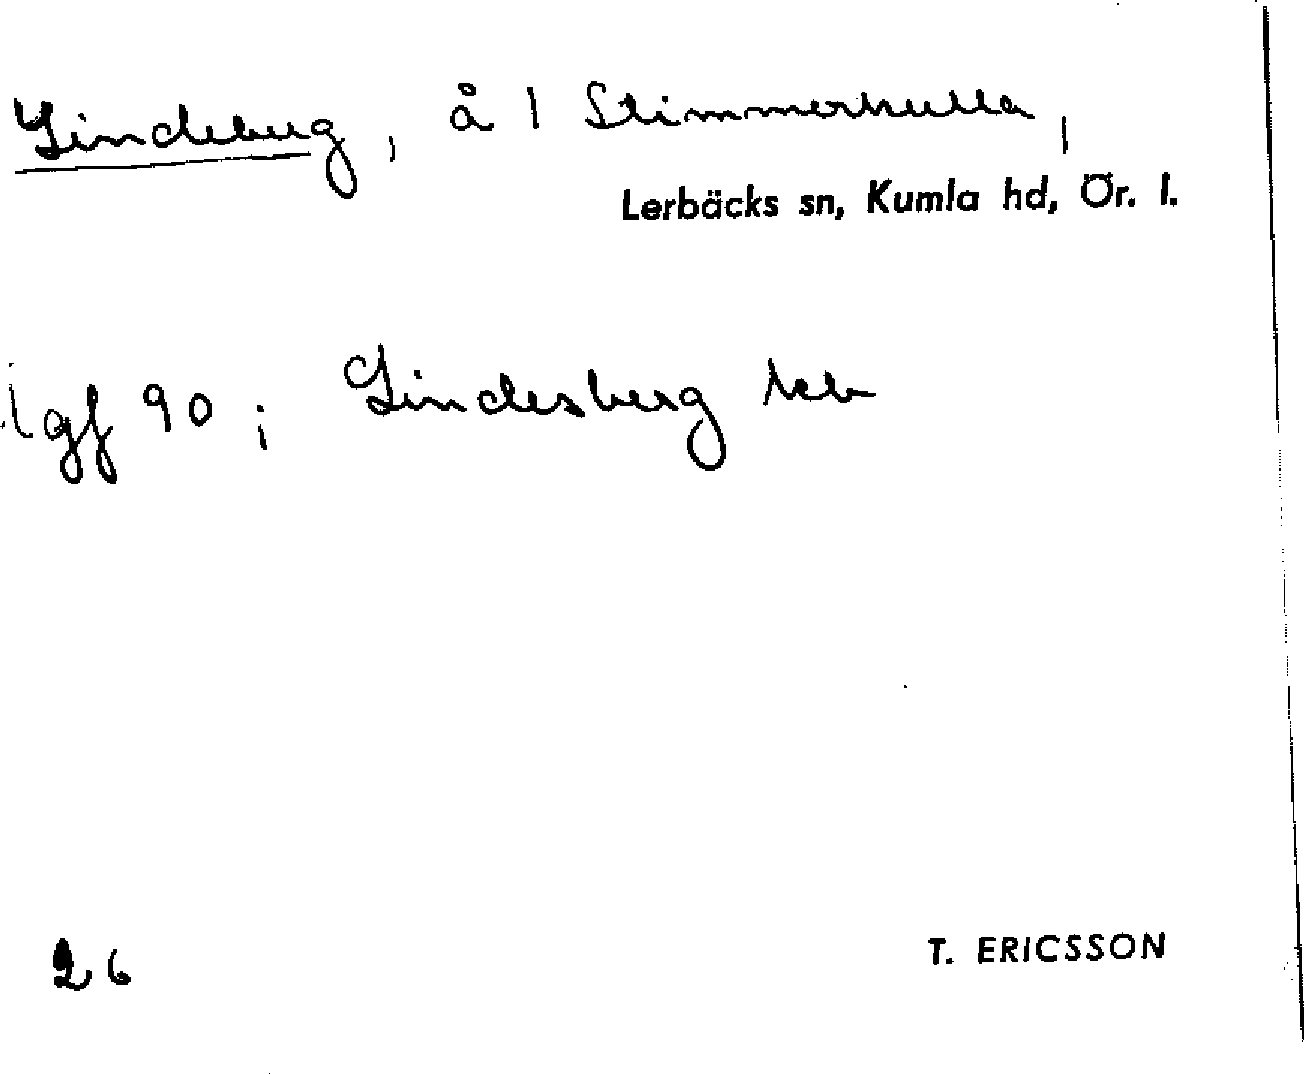 Lindeberg, å 1 Stimmerhulla,
Lerbäcks sn, Kumla hd, Ör. l.
lgf 90; Lindesberg
26
T. ERICSSON